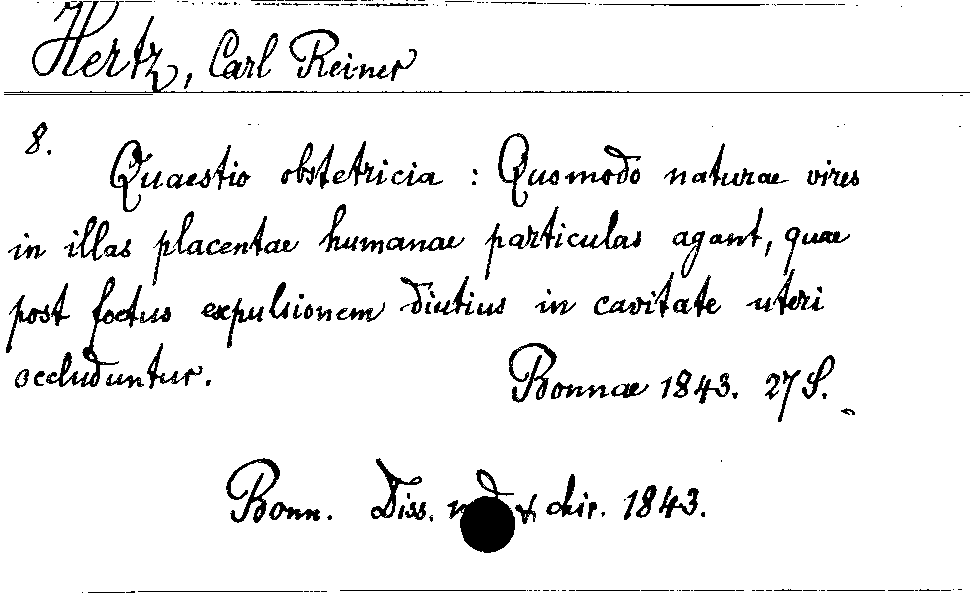 Hertz, Carl Reiner
8.
Quaestio obstetricia : Quomodo naturae vires
in illas placentae humanae particulas agant, quae
post foetus expulsionem diutius in cavitate uteri
occluduntur.
Bonnae 1843. 27 S.
Bonn. Diss. & chir. 1843.